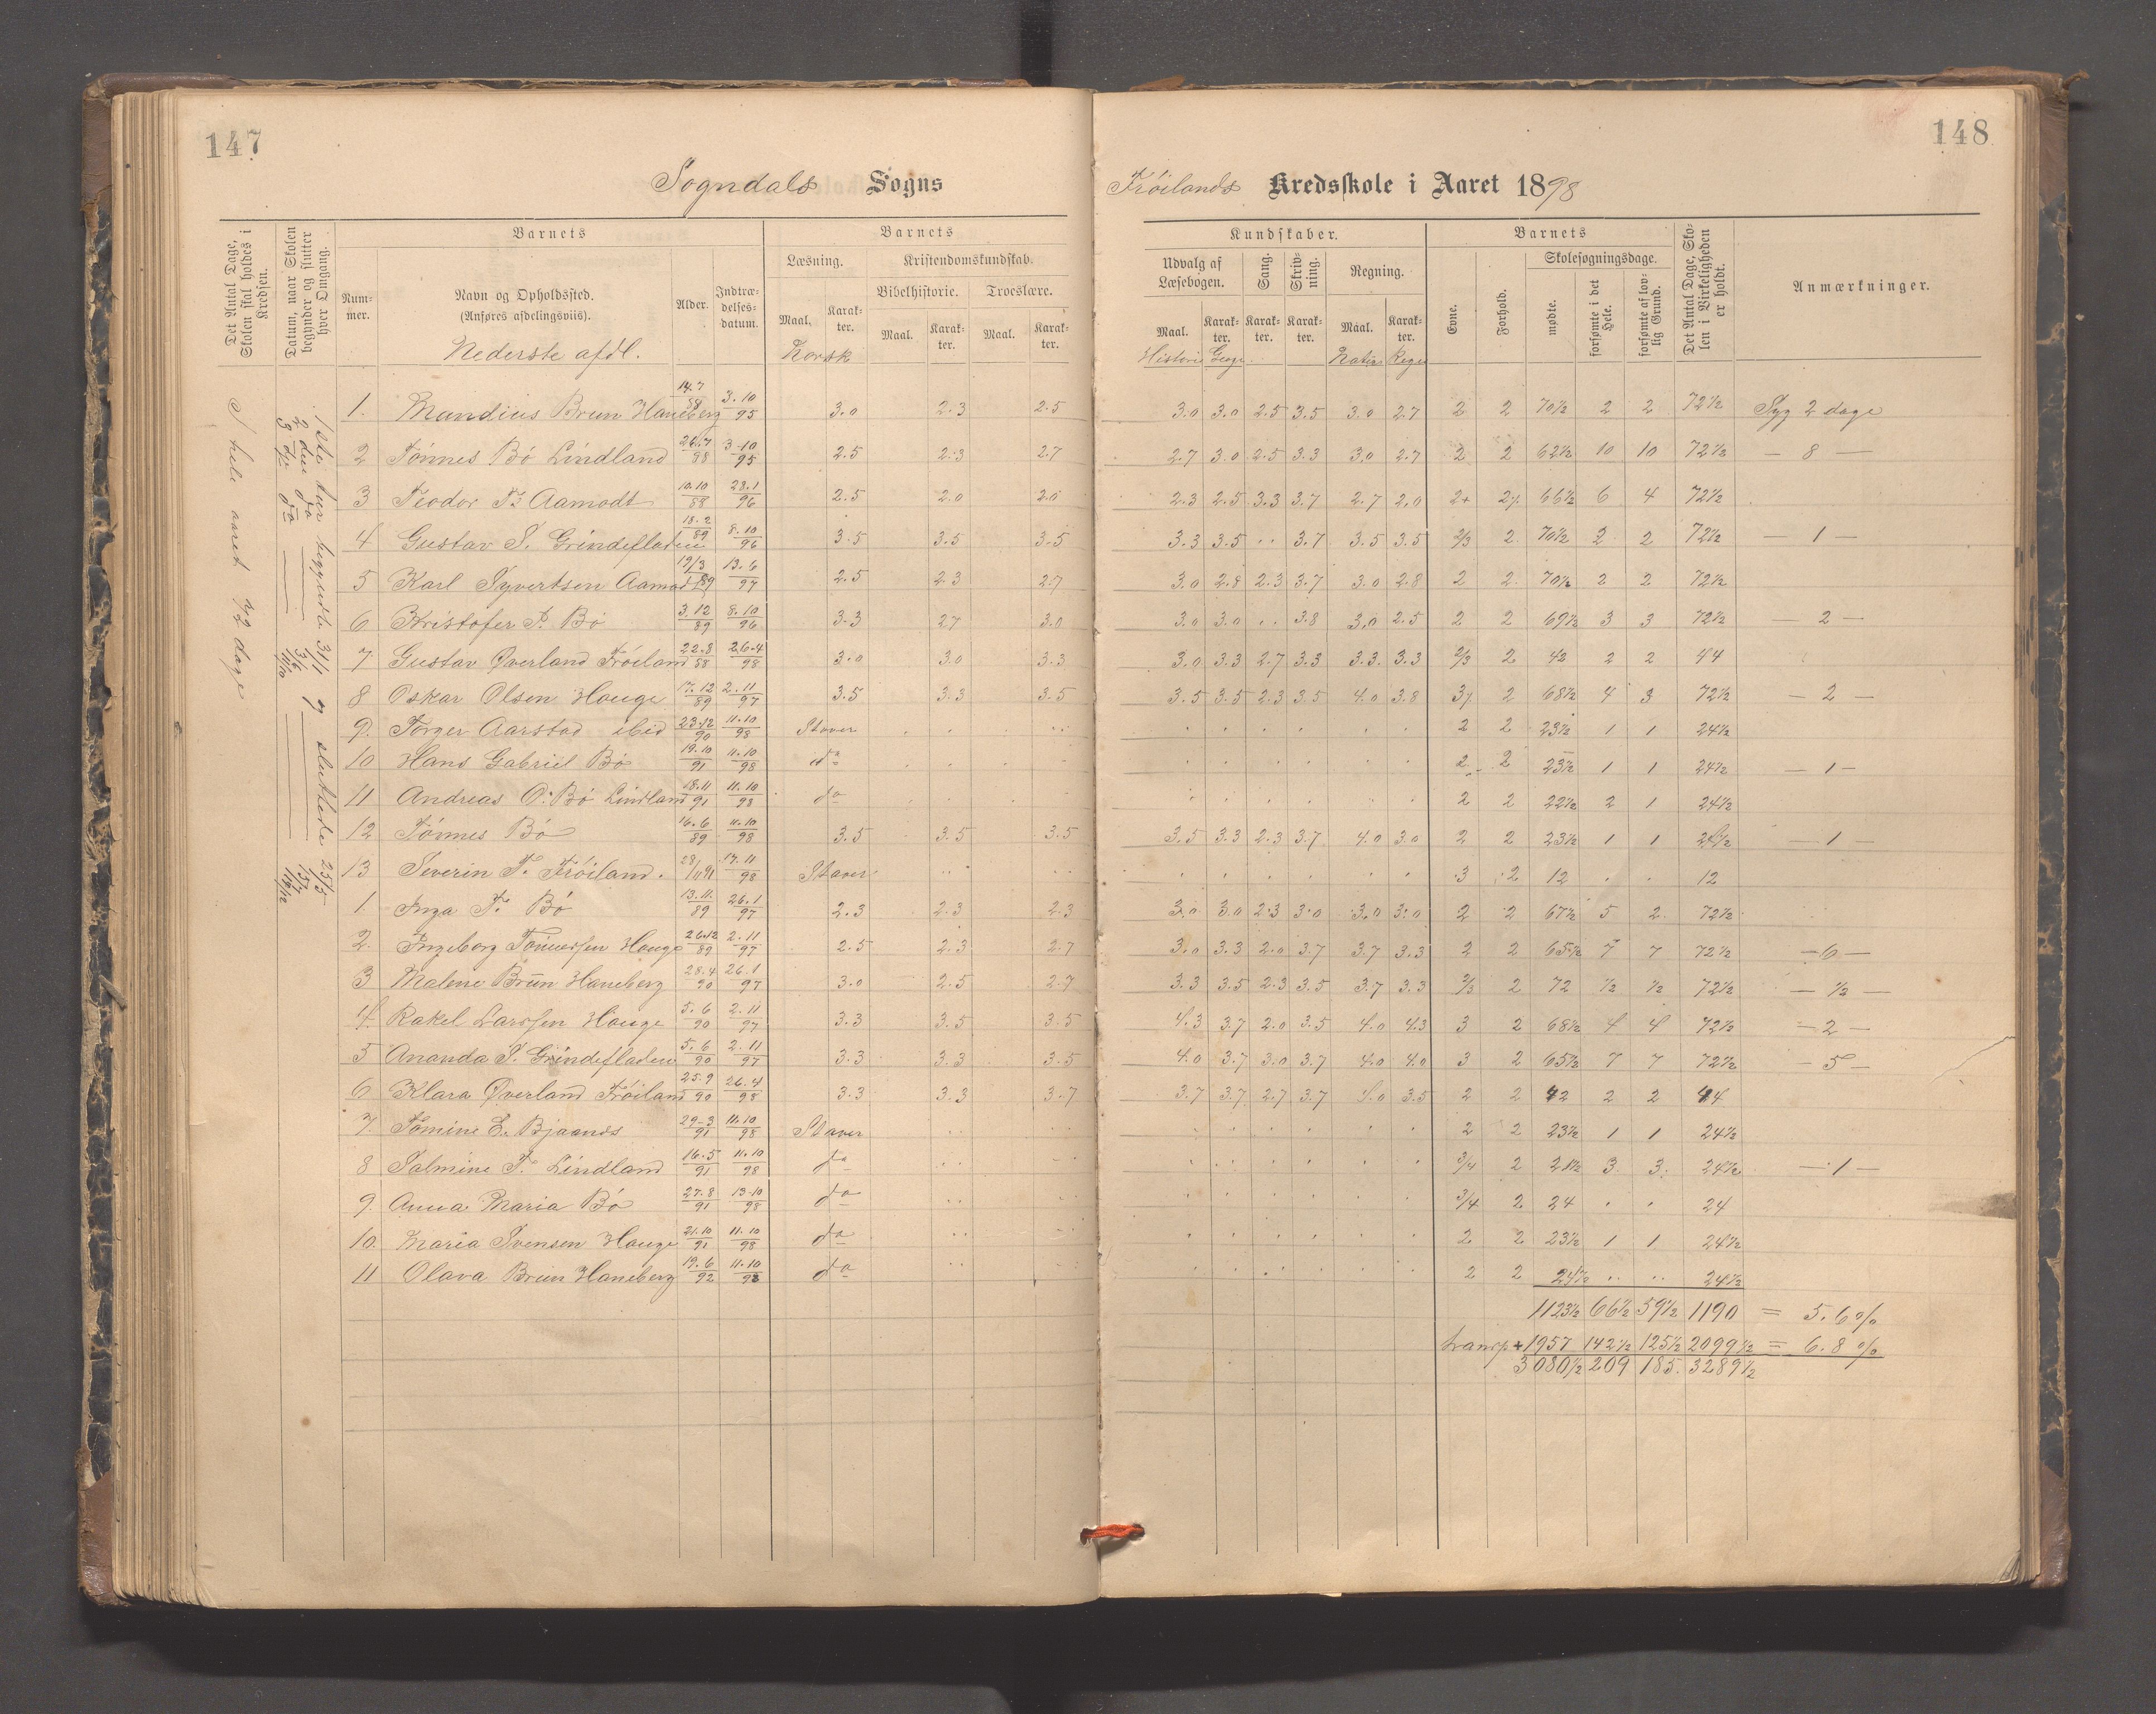 147
148
Sogndals Sogns
Frøilands Kredsskole i Aaret 1898
Det Antal Dage, Skolen skal holdes i Kredsen.
Datum, naar Skolen begynder og slutter hver Omgang.
Barnets
Nummer.
Navn og Opholdssted.
(Anføres afdelingsviis).
Nederste afdl.
Alder.
Indtrædelses-datum.
Barnets
Læsning.
Maal.
Karakter.
Norsk
Kristendomskundskab.
Bibelhistorie.
Troeslære.
Maal. Karakter. Maal. Karakter.
Kundskaber.
Udvalg af Læsebogen.
Sang.
Skrivning.
Regning.
Maal. Karakter. Karakter. Karakter. Maal. Karakter.
Historie Geogr. Natur Regn
Barnets
Evne.
Forhold.
Skolesøgningsdage.
mødte.
forsømte i det Hele.
forsømte af lovlig Grund.
Det Antal Dage, Skolen i Virkeligheden er holdt.
Anmærkninger.
I hele aaret 72 dage
1ste tur begyndte 31/1 og sluttede 25/3
2den do 3/6 15/7
3 do do 11/10 16/12
1. Mandius Brun Haneberg 14.7/88 3.10/95 3.0 2.3 2.5 3.0 3.0 2.5 3.5 3.0 2.7 2 2 70½ 2 2 72½ Syg 2 dage
2 Tønnes Bø Lindland 26.7/88 3-10/95 2.5 2.3 2.7 2.7 3.0 2.5 3.3 3.0 2.7 2 2 62½ 10 10 72½ — 8 —
3 Teodor T. Aamodt 10.10/88 28.1/96 2.5 2.0 2.0 2.3 2.5 3.3 3.7 2.7 2.0 2+ 2% 66½ 6 4 72½
4 Gustav S. Grindefladen 18.2/89 8.10/96 3.5 3.5 3.5 3.3 3.5 .. 3.7 3.5 3.5 2/3 2 70½ 2 2 72½ — 1 —
5 Karl Syvertsen Aamodt 19/3 89 13.6/97 2.5 2.3 2.7 3.0 2.8 2.3 3.7 3.0 2.8 2 2 70½ 2 2 72½
6 Kristofer P. Bø 3.12/89 8.10/96 3.3 2.7 3.0 3.0 3.0 .. 3.8 3.0 2.5 2 2 69½ 3 3 72½ — 2 —
7 Gustav Øverland Frøiland 22.8/88 26.4/98 3.0 3.0 3.3 3.0 3.3 2.7 3.3 3.3 3.3 2/3 2 42 2 2 44
8 Oskar Olsen Hauge 17.12/89 2.11/97 3.5 3.3 3.5 3.5 3.5 2.3 3.5 4.0 3.8 3% 2 68½ 4 3 72½ — 2 —
9. Torger Aarstad ibid 23.12/90 11.10/98 Staver 2 2 23½ 1 1 24½
10 Hans Gabriel Bø 19.10/91 11.10/98 do 2 2 23½ 1 1 24½ — 1 —
11 Andreas O. Bø Lindland 18.11/91 11.10/98 do 2 2 22½ 2 1 24½
12 Tønnes Bø 16.6/89 11.10/98 3.5 3.5 3.5 3.5 3.3 2.3 3.7 4.0 3.0 2 2 23½ 1 1 24½ — 1 —
13 Severin T. Frøiland. 28/11 91 17.11/98 Staver 3 2 12 . . 12
1 Inga T. Bø 13.11./89 26.1/97 2.3 2.3 2.3 3.0 3.0 2.3 3.0 3.0 3.0 2 2 67½ 5 2 72½
2. Ingeborg Tønnessen Hauge 26.12/89 2.11/97 2.5 2.3 2.7 3.0 3.3 2.0 3.7 3.7 3.3 2 2 65½ 7 7 72½ — 6 —
3 Malene Brün Haneberg 28.4/90 26.1/97 3.0 2.5 2.7 3.3 3.5 2.3 3.5 3.7 3.3 2/3 2 72 ½ ½ 72½ — ½ —
4. Rakel Larssen Hauge 5.6/90 2.11/97 3.3 3.5 3.5 4.3 3.7 2.0 3.5 4.0 4.3 3 2 68½ 4 4 72½ — 2 —
5 Ananda S. Grindefladen 5.6/90 2.11/97 3.3 3.3 3.5 4.0 3.7 3.0 3.7 4.0 4.0 3 2 65½ 7 7 72½ — 5 —
6 Klara Øverland Frøiland 25.9/90 26.4/98 3.3 3.3 3.7 3.7 3.7 2.7 3.7 4.0 3.5 2 2 42 2 2 44
7. Tomine E. Bjaanes 29-3/91 11.10/98 Staver 2 2 23½ 1 1 24½
8 Salmine T. Lindland 16.5/91 11.10/98 do 3/4 2 21½ 3 3. 24½ — 1 —
9. Anna Maria Bø 27.8/91 13-10/98 do 3/4 2 24 . . 24
10. Maria Svensen Hauge 21.10/91 11.10/98 do 2 2 23½ 1 1 24½
11 Olava Brün Haneberg 19.6/92 11.10/98 do 2 2 24½ .. .. 24½
1123½ 66½ 59½ 1190 = 5.6%
transp + 1957 142½ 125½ 2099½ = 6.8%
3080½ 209 185. 3289½